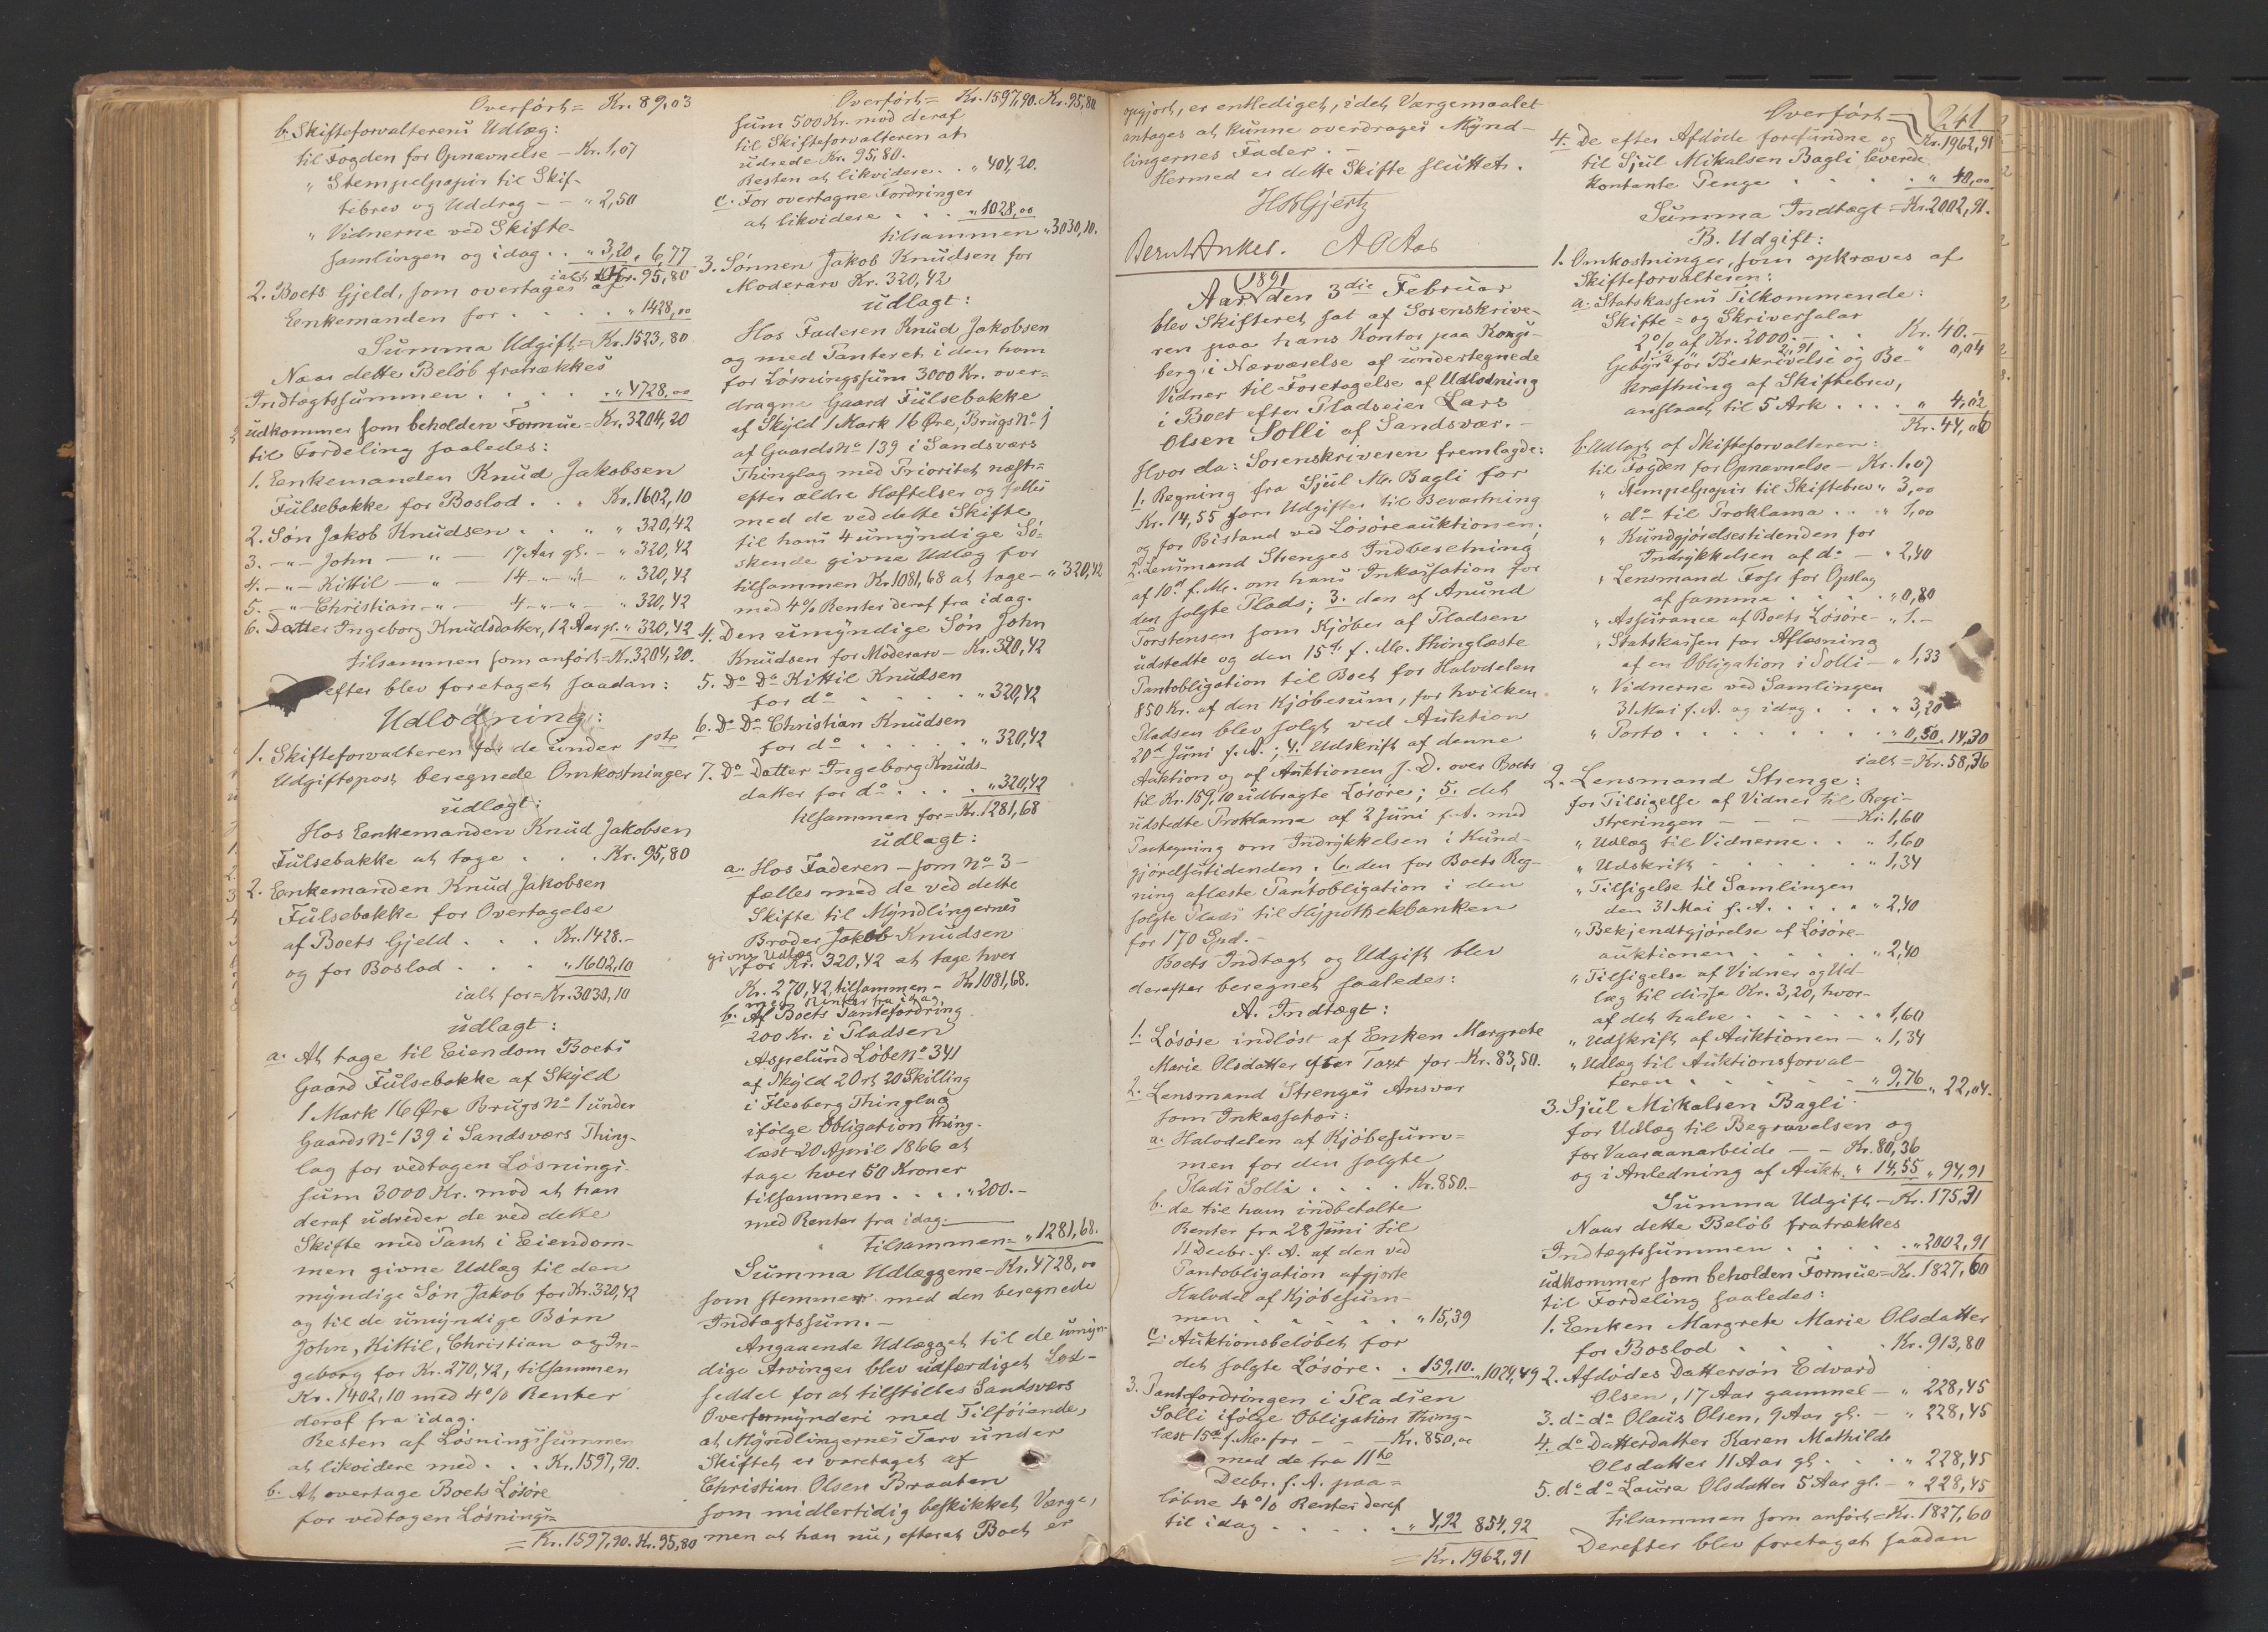 Overført = Kr. 89,03
b. Skifteforvalterens Udlæg:
til Fogden for Opnævnelse – Kr. 1,07
" Stempelpapir til Skif-
tebrev og Uddrag – – " 2,50
" Vidnerne ved Skifte-
samlingen og idag . . " 3,20 " 6,77
ialt Kr. 95,80
2. Boets Gjeld, som overtages af
Enkemanden for . . . . " 1428,00
Summa Udgift = Kr. 1523,80
Naar dette Beløb fratrækkes
Indtægtssummen . . . . " 4728,00
udkommer som beholden Formue = Kr. 3204,20
til Fordeling saaledes:
1. Enkemanden Knud Jakobsen
Fulsebakke for Boslod . . . Kr. 1602,10
2. Søn Jakob Knudsen . . " " 320,42
3. – " – John – " – 17 Aar gl. – " 320,42
4. – " – Kittil – " – 14 – " – " – " 320,42
5. – " – Christian – " – 4 – " – " – " 320,42
6. Datter Ingeborg Knudsdatter, 12 Aar gl. " 320,42
tilsammen som anført = Kr. 3204,20.
efter blev foretaget saadan:
Udlodning:
1. Skifteforvalteren for de under 1ste
Udgiftspost beregnede Omkostninger
udlagt:
Hos Enkemanden Knud Jakobsen
Fulsebakke at tage . . . Kr. 95,80
2. Enkemanden Knud Jakobsen
Fulsebakke for Overtagelse
af Boets Gjeld . . . Kr. 1428.–
og for Boslod . . . " 1602,10
ialt for = Kr. 3030,10
udlagt:
a. At tage til Eiendom Boets
Gaard Fulsebakke af Skyld
1 Mark 16 Øre Brugs No 1 under
Gaards No 139 i Sandsværs Thing-
lag for vedtagen Løsnings-
sum 3000 Kr. mod at han
deraf udreder de ved dette
Skifte med Pant i Eiendom-
men givne Udlæg til den
myndige Søn Jakob for Kr. 320,42
og til de umyndige Børn
John, Kittil, Christian og In-
geborg for Kr. 270,42, tilsammen
Kr. 1402,10 med 4% Renter
deraf fra idag.
Resten af Løsningssummen
at likvidere med . . . Kr. 1597,90.
b. At overtage Boets Løsøre
for vedtagen Løsnings=
= Kr. 1597,90. Kr. 95,80
Overført = Kr. 1597,90. Kr. 95,80
sum 500 Kr. mod deraf
til Skifteforvalteren at
udrede Kr. 95,80.
Resten at likvidere . . " 404,20.
c. For overtagne Fordringer
at likvidere . . . " 1028,00
tilsammen " 3030,10.
3. Sønnen Jakob Knudsen for
Moderarv Kr. 320,42
udlagt:
Hos Faderen Knud Jakobsen
og med Panteret i den ham
for Løsningssum 3000 Kr. over=
dragne Gaard Fulsebakke
af Skyld 1 Mark 16 Øre, Brugs No 1
af Gaards No 139 i Sandsværs
Thinglag med Prioritet næst=
efter ældre Hæftelser og fælles
med de ved dette Skifte
til hans 4 umyndige Sø=
skende givne Udlæg for
tilsammen Kr. 1081,68 at tage – " 320,42
med 4% Renter deraf fra idag.
4. Den umyndige Søn John
Knudsen for Moderarv – Kr. 320,42
5. Do Do Kittil Knudsen
for do . . . . " 320,42
6. Do Do Christian Knudsen
for do . . . . . " 320,42
7. Do Datter Ingeborg Knuds-
datter for do . . . . " 320,42
tilsammen for = Kr. 1281,68
udlagt:
a. Hos Faderen – som No 3 –
fælles med de ved dette
Skifte til Myndlingernes
Broder Jakob Knudsen
givne Udlæg
for Kr. 320,42 at tage hver
Kr. 270,42, tilsammen – Kr. 1081,68.
med Renter fra idag.
b. Af Boets Pantefordring
200 Kr. i Pladsen
Aspelund Løbe No 341
af Skyld 2 Ort 20 Skilling
i Flesberg Thinglag
ifølge Obligation thing-
læst 20 April 1866 at
tage hver 50 Kroner
tilsammen . . . . " 200.–
med Renter fra idag.
tilsammen = " 1281,68.
Summa Udlæggene – Kr. 4728,00
som stemmer med den beregnede
Indtægtssum. –
Angaaende Udlægget til de umyn-
dige Arvinger blev udfærdiget Lod-
seddel for at tilstilles Sandsværs
Overformynderi med Tilføiende,
at Myndlingernes Tarv under
Skiftet er varetaget af
Christian Olsen Braaten
som midlertidig beskikket Værge,
men at han nu, efterat Boet er
opgjort, er entlediget, idet Værgemaalet
antages at kunne overdrages Mynd-
lingernes Fader. –
Hermed er dette Skifte sluttet.
Bernt Anker. A O Aas
1891
Aar den 3die Februar
blev Skifteret sat af Sorenskrive-
ren paa hans Kontor paa Kongs-
berg i Nærværelse af undertegnede
Vidner til Foretagelse af Udlodning
i Boet efter Pladseier Lars
Olsen Solli af Sandsvær. –
Hvor da: Sorenskriveren fremlagde:
1. Regning fra Sjul M. Bagli for
Kr. 14,55 som Udgifter til Beværtning
og for Bistand ved Løsøreauktionen;
2. Lensmand Strenges Indberetning
af 10de f. M. om hans Inkassation for
den solgte Plads; 3. den af Anund
Torstensen som Kjøber af Pladsen
udstedte og den 15de f. M. thinglæste
Pantobligation til Boet for Halvdelen
850 Kr. af den Kjøbesum, for hvilken
Pladsen blev solgt ved Auktion
20de Juni f. A.; 4. Udskrift af denne
Auktion og af Auktionen s. D. over Boets
til Kr. 159,10 udbragte Løsøre; 5. det
udstedte Proklama af 2 Juni f. A. med
Paategning om Indrykkelsen i Kund-
gjørelsestidenden; 6. den for Boets Reg-
ning aflæste Pantobligation i den
solgte Plads til Hypothekbanken
for 170 Spd. –
Boets Indtægt og Udgift blev
derefter beregnet saaledes:
A. Indtægt:
1. Løsøre indløst af Enken Margrete
Marie Olsdatter efter Taxt for – Kr. 83,50.
2. Lensmand Strenges Ansvar
som Inkassator:
a. Halvdelen af Kjøbesum=
men for den solgte
Plads Solli . . . . Kr. 850.–
b. de til ham indbetalte
Renter fra 28 Juni til
11 Decbr. f. A. af den ved
Pantobligation afgjorte
Halvdel af Kjøbesum-
men . . . . . . " 15,39
c. Auktionsbeløbet for
det solgte Løsøre . . 159,10. " 1024,49
3. Pantefordringen i Pladsen
Solli ifølge Obligation thing-
læst 15de f. M. for – – – Kr. 850,00
med de fra 11te
Decbr. f. A. paa=
løbne 4% Renter deraf
til idag . . . . . " 4,92 854,92
= Kr. 1962,91
241
Overført = Kr. 1962,91
4. De efter Afdøde forefundne og
til Sjul Mikalsen Bagli leverede
kontante Penge . . . . . " 40,00
Summa Indtægt = Kr. 2002,91.
B. Udgift:
1. Omkostninger, som opkræves af
Skifteforvalteren:
a. Statskassens Tilkommende:
Skifte= og Skriversalar
2% af Kr. 2000. – . . . Kr. 40.–
1½ " " " 2,91 . . " 0,04
Gebyr for Beskrivelse og Be-
kræftning af Skiftebrev,
anslaaet til 5 Ark . . . . " 4,02
Kr. 44,06
b. Udlagt af Skifteforvalteren:
til Fogden for Opnævnelse – Kr. 1,07
" Stempelpapir til Skiftebrev " 3,00
" do til Proklama . . . " 1,00
" Kundgjørelsestidenden for
Indrykkelsen af do – " 2,40
" Lensmand Foss for Opslag
af samme . . . . . " 0,80
" Assurance af Boets Løsøre – " 1.–
" Statskassen for Aflæsning
af en Obligation i Solli – " 1,33
" Vidnerne ved Samlingen
31 Mai f. A. og idag . . . " 3,20
" Porto . . . . . . . " 0,50 " 14,30
ialt = Kr. 58,36
2. Lensmand Strenge:
for Tilsigelse af Vidner til Regi-
streringen – – – – Kr. 1,60
" Udlæg til Vidnerne . . " 1,60
" Udskrift . . . . . " 1,34
" Tilsigelse til Samlingen
den 31 Mai f. A. . . . " 2,40
" Bekjendtgjørelse af Løsøre-
auktionen . . . . . " 2,40
" Tilsigelse af Vidner og Ud-
læg til disse Kr. 3,20, hvor-
af det halve . . . . . " 1,60
" Udskrift af Auktionen – " 1,34
" Udlæg til Auktionsforval-
teren . . . . . . " 9,76 " 22,04.
3. Sjul Mikalsen Bagli
for Udlæg til Begravelsen og
for Vaaraanarbeide – – Kr. 80,36
og i Anledning af Aukt. " 14,55 " 94,91
Summa Udgift – Kr. 175,31
Naar dette Beløb fratrækkes
Indtægtssummen . . . . . " 2002,91
udkommer som beholden Formue = Kr. 1827,60
til Fordeling saaledes:
1. Enken Margrete Marie Olsdatter
for Boslod . . . . . Kr. 913,80
2. Afdødes Dattersøn Edvard
Olsen, 17 Aar gammel – " 228,45
3. do do Olaus Olsen, 9 Aar gl. – " 228,45
4. do Datterdatter Karen Mathilde
Olsdatter 11 Aar gl. . . . " 228,45
5. do do Laura Olsdatter 5 Aar gl. – " 228,45
tilsammen som anført = Kr. 1827,60
Derefter blev foretaget saadan